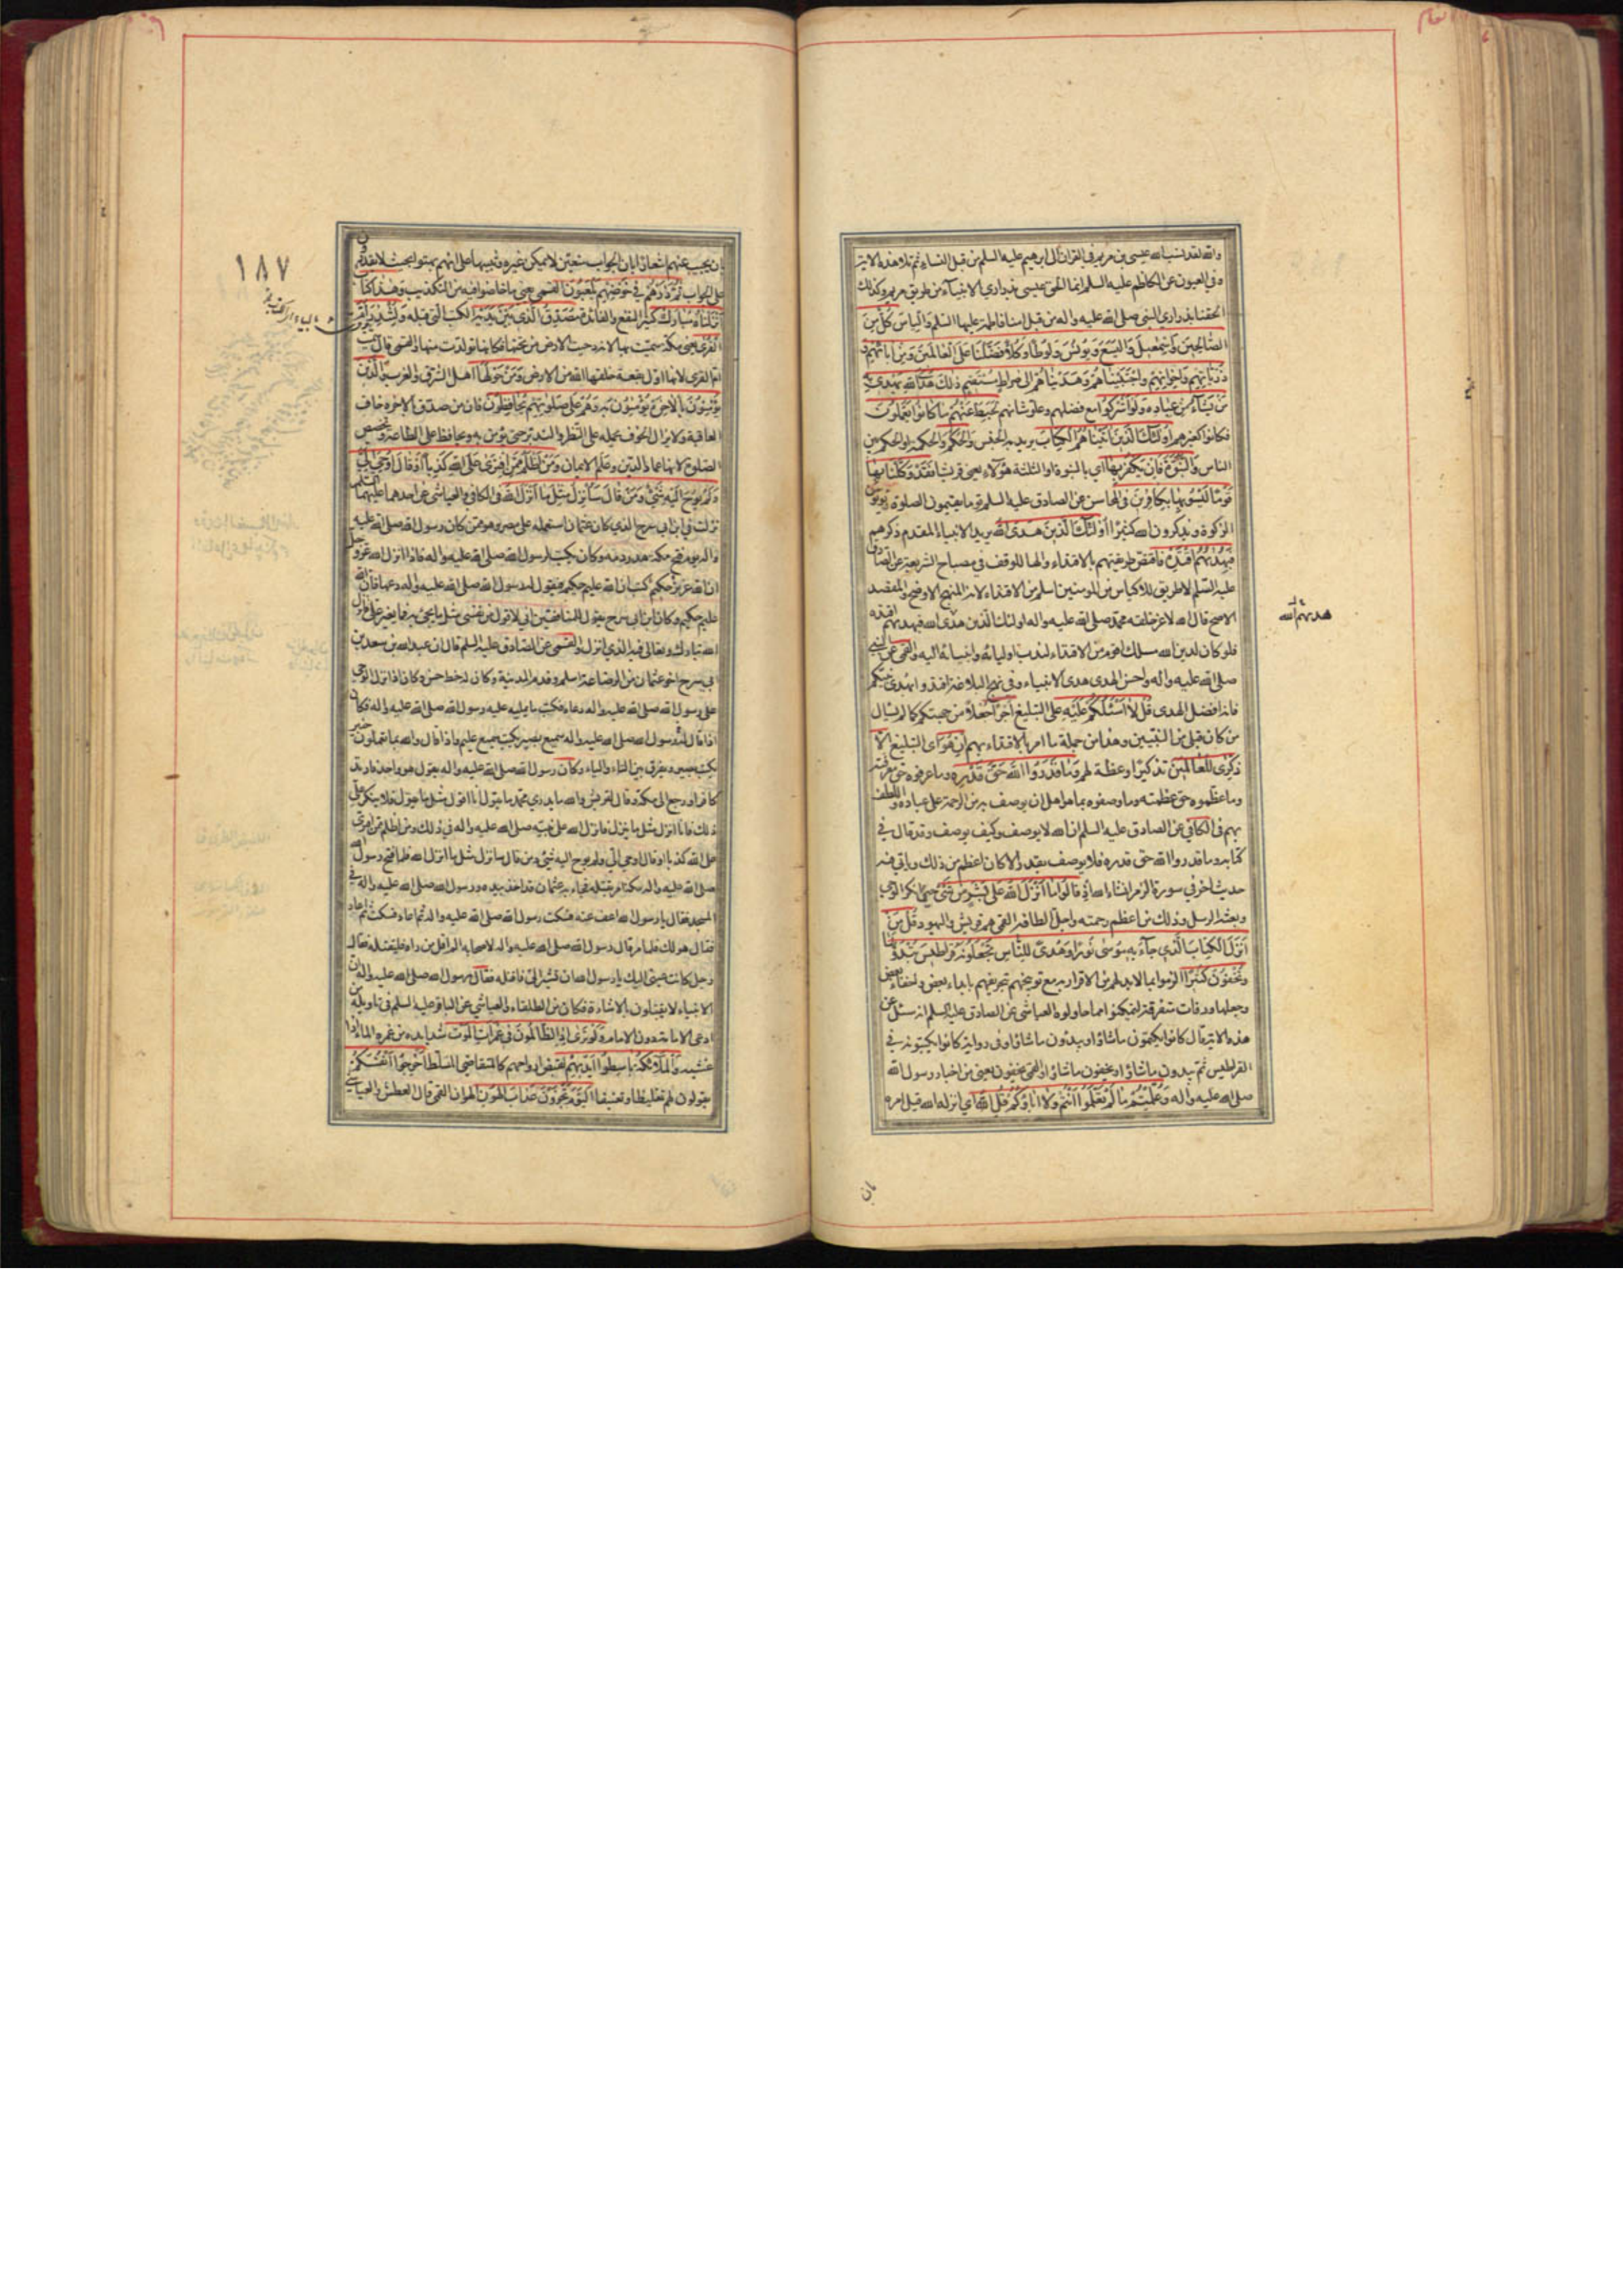 والله لقد نسب الله عيسى بن مريم في القران الى ابرهيم عليه السلم من قبل النساء ثم تلا هذه الاية
وفي العيون عن الكاظم عليه السلم انما الحق عيسى بذراري الانبياء من طريق مريم وكذلك
الحقنا بذراري النبي صلى الله عليه واله من قبل امنا فاطمة عليها السلم والياس كل من
الصالحين واسمعيل واليسع ويونس ولوطا وكلا فضلنا على العالمين ومن ابائهم و
ذرياتهم واخوانهم واجتبيناهم وهديناهم الى صراط مستقيم ذلك هدى الله يهدي به
من يشاء من عباده ولو اشركوا مع فضلهم وعلو شانهم لحبط عنهم ما كانوا يعملون
فكانوا كغيرهم اولئك الذين اتيناهم الكتاب يريد به الجنس والحكم والحكمة او الحكم بين
الناس والنبوة فان يكفر بها اي بالنبوة او الثلثة هؤلاء يعني قريشا فقد وكلنا بها
قوما ليسوا بها بكافرين في المحاسن عن الصادق عليه السلم قوما يقيمون الصلوة ويؤتون
الزكوة ويذكرون الله كثيرا اولئك الذين هدى الله يريد الانبياء المقدم ذكرهم
فبهداهم اقتده فاختص طريقتهم بالاقتداء والهاء للوقف في مصباح الشريعة عن الصادق
عليه السلم لا طريق للاكياس من المؤمنين اسلم من الاقتداء لانه المنهج الاوضح والمقصد
الاصح قال الله لاعز خلقه محمد صلى الله عليه واله اولئك الذين هدى الله فبهديهم اقتده
فلو كان لدين الله مسلك اقوم من الاقتداء لندب اولياءه وانبياءه اليه والقمي عن النبي
صلى الله عليه واله واحسن الهدى هدى الانبياء وفي نهج البلاغة اقتدوا بهدى نبيكم
فانه افضل الهدى قل لا اسئلكم عليه على التبليغ اجرا جعلا من جهتكم كما لم يسال
من كان قبلي من النبيين وهذا من جملة ما امر بالاقتداء بهم ان هو اي التبليغ الا
ذكرى للعالمين تذكيرا وعظة لهم وما قدروا الله حق قدره وما عرفوه حق معرفته
وما عظموه حق عظمته وما وصفوه بما هو اهل ان يوصف به من الرحمة على عباده واللطف
بهم في الكافي عن الصادق عليه السلم ان الله لا يوصف وكيف يوصف وقد قال في
كتابه وما قدروا الله حق قدره فلا يوصف بقدر الا كان اعظم من ذلك وياتي فيه
حديث اخر في سورة الزمر انشاء الله اذ قالوا ما انزل الله على بشر من شئ حين انكروا الوحي
وبعثة الرسل وذلك من اعظم رحمته واجل الطافه القمي هم قريش واليهود قل من
انزل الكتاب الذي جاء به موسى نورا وهدى للناس تجعلونه قراطيس تبدونها
وتخفون كثيرا الزموا بما لا بد لهم من الاقرار به مع توبيخهم بتحريفهم بابداء بعض واخفاء بعض
وجعلها ورقات متفرقة ليتمكنوا مما حاولوه العياشي عن الصادق عليه السلم انه سئل عن
هذه الاية قال كانوا يكتمون ما شاؤا ويبدون ما شاؤا وفي رواية كانوا يكتبونه في
القراطيس ثم يبدون ما شاؤا ويخفون ما شاؤا والقمي يخفون يعني من اخبار رسول الله
صلى الله عليه واله وعلمتم ما لم تعلموا انتم ولا اباؤكم قل الله اي انزله الله قيل امره
١٨٧
بان يجيب عنهم اشعارا بان الجواب متعين لا يمكن غيره وتنبيها على انهم بهتوا بحيث لا يقدرون
على الجواب ثم ذرهم في خوضهم يلعبون القمي يعني ما خاضوا فيه من التكذيب وهذا كتاب
انزلناه مبارك كثير النفع والفائدة مصدق الذي بين يديه الكتب التي قبله ولتنذر ام
القرى يعني مكة سميت بها لانه دحيت الارض من تحتها فكانها تولدت منها والقمي قال سميت
ام القرى لانها اول بقعة خلقها الله من الارض ومن حولها اهل الشرق والغرب والذين
يؤمنون بالاخرة يؤمنون به وهم على صلوتهم يحافظون فان من صدق بالاخرة خاف
العاقبة ولا يزال الخوف يحمله على النظر والتدبر حتى يؤمن به ويحافظ على الطاعة وتخصيص
الصلوة لانها عماد الدين وعلم الايمان ومن اظلم ممن افترى على الله كذبا او قال اوحي الي
ولم يوح اليه شئ ومن قال سانزل مثل ما انزل الله في الكافي والعياشي عن احدهما عليهما السلم
نزلت في ابن ابي سرح الذي كان عثمان استعمله على مصر وهو ممن كان رسول الله صلى الله عليه
واله يوم فتح مكة هدر دمه وكان يكتب لرسول الله صلى الله عليه واله فاذا انزل الله عز وجل
ان الله عزيز حكيم كتب ان الله عليم حكيم فيقول له رسول الله صلى الله عليه واله دعها فان الله
عليم حكيم وكان ابن ابي سرح يقول للمنافقين اني لاقول من نفسي مثل ما يجئ به فما يغير علي فانزل
الله تبارك وتعالى فيه الذي انزل والقمي عن الصادق عليه السلم قال ان عبد الله بن سعد بن
ابي سرح اخو عثمان من الرضاعة اسلم وقدم المدينة وكان له خط حسن وكان اذا نزل الوحي
على رسول الله صلى الله عليه واله دعاه فكتب ما يمليه عليه رسول الله صلى الله عليه واله فكان
اذا قال له رسول الله صلى الله عليه واله سميع بصير يكتب سميع عليم واذا قال والله بما تعملون خبير
يكتب بصير ويفرق بين التاء والياء وكان رسول الله صلى الله عليه واله يقول هو واحد فارتد
كافرا ورجع الى مكة وقال لقريش والله ما يدري محمد ما يقول انا اقول مثل ما يقول فلا ينكر علي
ذلك فانا انزل مثل ما ينزل فانزل الله على نبيه صلى الله عليه واله في ذلك ومن اظلم ممن افترى
على الله كذبا او قال اوحي الي ولم يوح اليه شئ ومن قال سانزل مثل ما انزل الله فلما فتح رسول الله
صلى الله عليه واله مكة امر بقتله فجاء به عثمان قد اخذ بيده ورسول الله صلى الله عليه واله في
المسجد فقال يا رسول الله اعف عنه فسكت رسول الله صلى الله عليه واله ثم اعاد فسكت ثم اعاد
فقال هو لك فلما مر قال رسول الله صلى الله عليه واله لاصحابه الم اقل من راه فليقتله فقال
رجل كانت عيني اليك يا رسول الله ان تشير الي فاقتله فقال رسول الله صلى الله عليه واله ان
الانبياء لا يقتلون بالاشارة فكان من الطلقاء والعياشي عن الباقر عليه السلم في تاويله من
ادعى الامامة دون الامام ولو ترى اذ الظالمون في غمرات الموت شدايده من غمره الماء اذا
غشيه والملائكة باسطوا ايديهم لقبض ارواحهم كالمتقاضي المسلط اخرجوا انفسكم
يقولون لهم تغليظا وتعنيفا اليوم تجزون عذاب الهون الهوان القمي قال العطش والعياشي